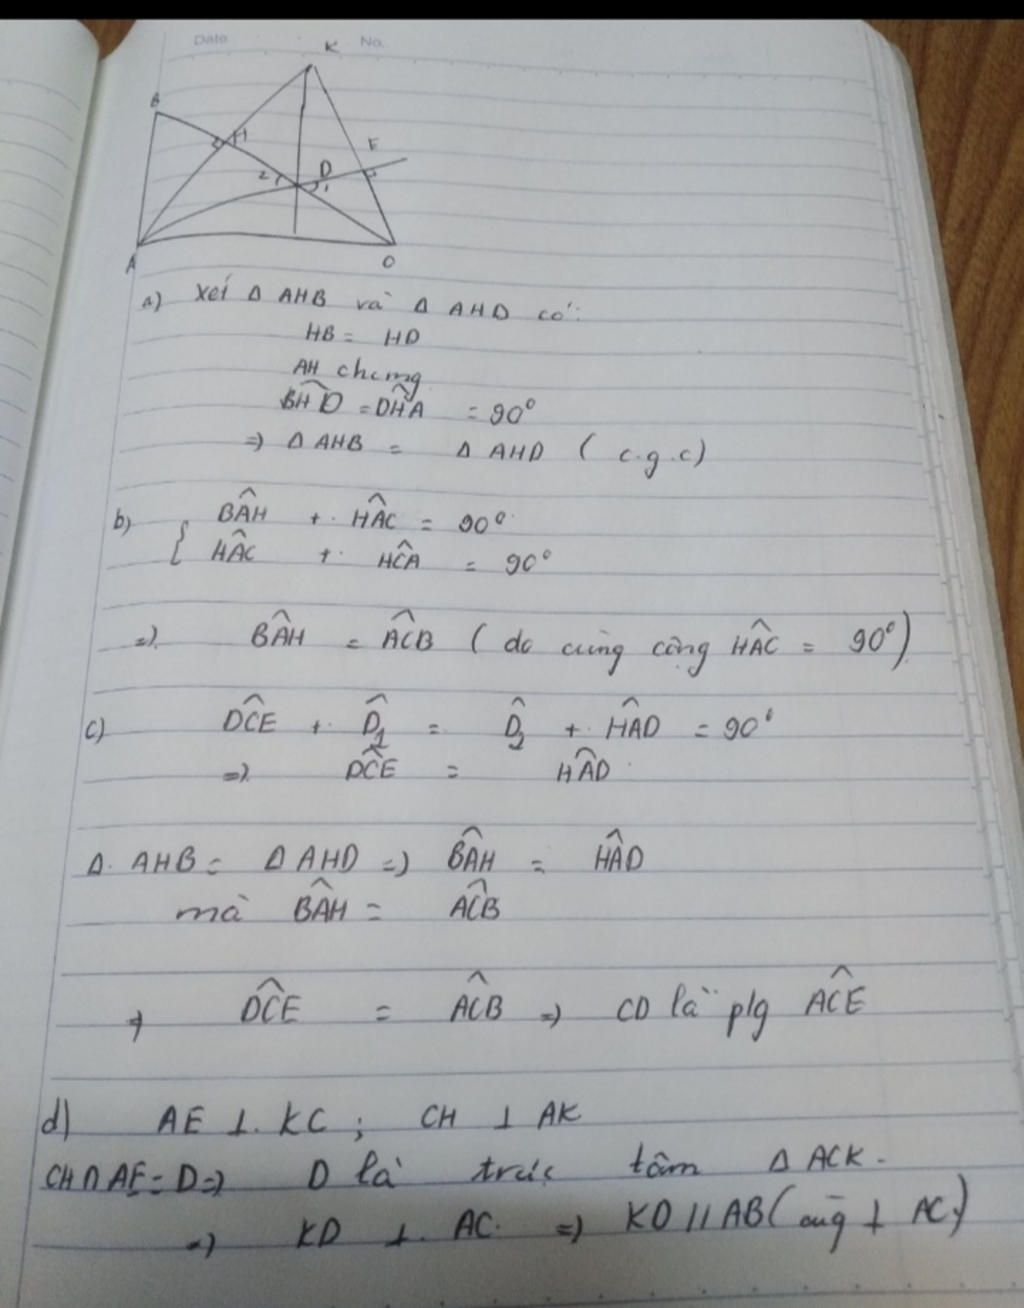 Date No.
K
B
H
E
2 D
1
A C
a) Xét Δ AHB và Δ AHD có:
HB = HD
AH chung
BĤD = DĤA = 90°
=> Δ AHB = Δ AHD ( c.g.c)
b) { BÂH + HÂC = 90°
HÂC + HĈA = 90°
=> BÂH = AĈB ( do cùng cộng HÂC = 90°)
c) DĈE + D̂1 = D̂2 + HÂD = 90°
=> DĈE = HÂD
Δ AHB = Δ AHD => BÂH = HÂD
mà BÂH = AĈB
=> DĈE = AĈB => CD là plg AĈE
d) AE ⊥ KC ; CH ⊥ AK
CH ∩ AE = D => D là trực tâm Δ ACK.
=> KD ⊥ AC. => KD // AB ( cùg ⊥ AC)